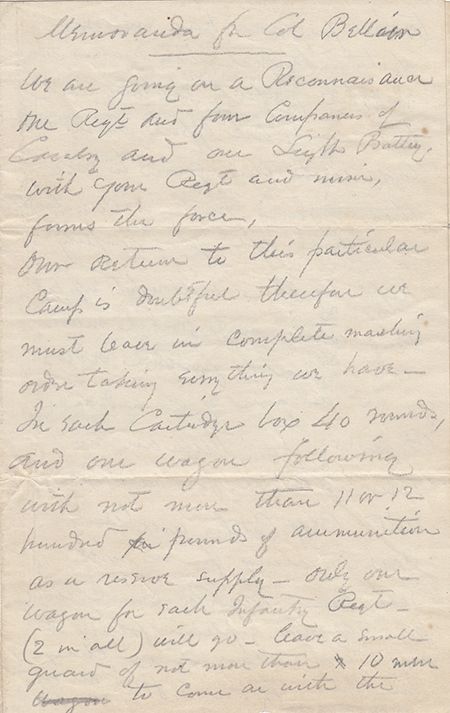 Memoranda for Col Bellair
We are going on a Reconnaisance
One Regt and four Companies of
Cavalry and one Light Battery,
with your Regt and mine,
forms the force,
Our return to this particular
Camp is doubtful therefore we
must leave in complete marching
order taking everything we have —
In each Cartridge box 40 rounds,
and one wagon following
with not more than 11 or 12
hundred pounds of ammunition
as a reserve supply — Only one
wagon for each Infantry Regt —
(2 in all) will go — leave a small
guard of not more than 10 men
wagon to come on with the